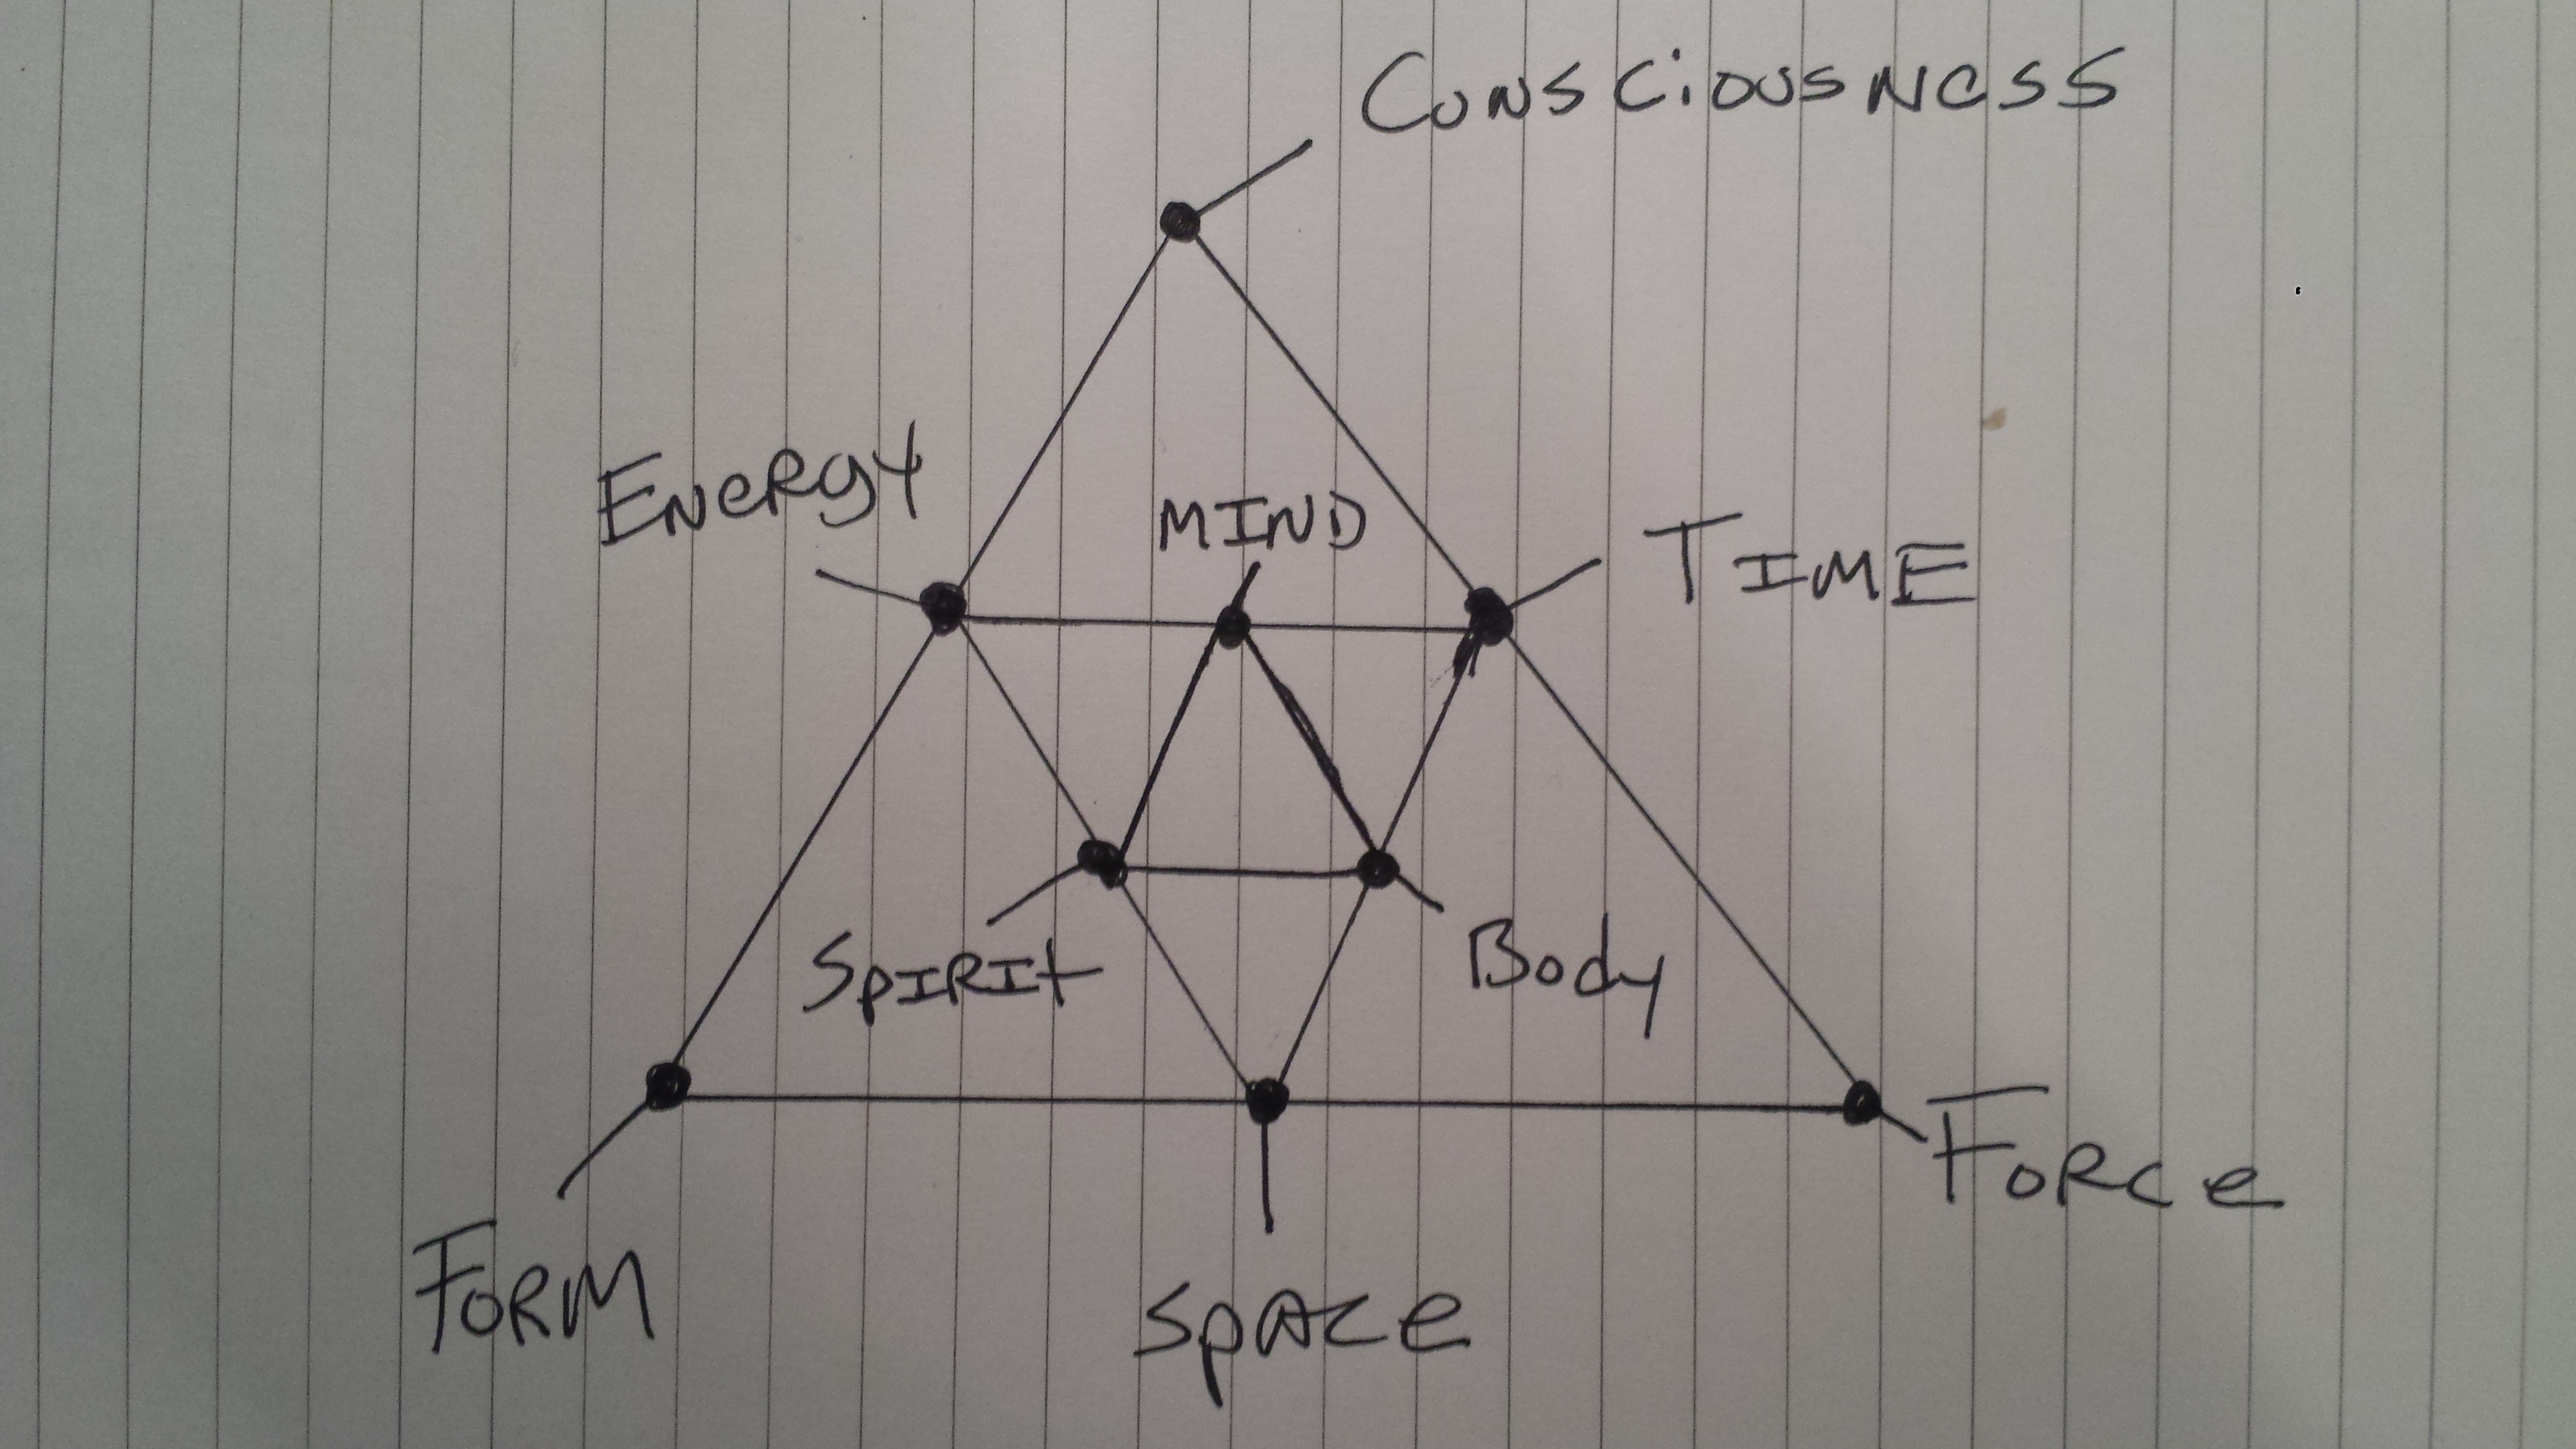 Consciousness
Energy
MIND
TIME
SPIRIt
Body
FORM
SpAce
FoRce